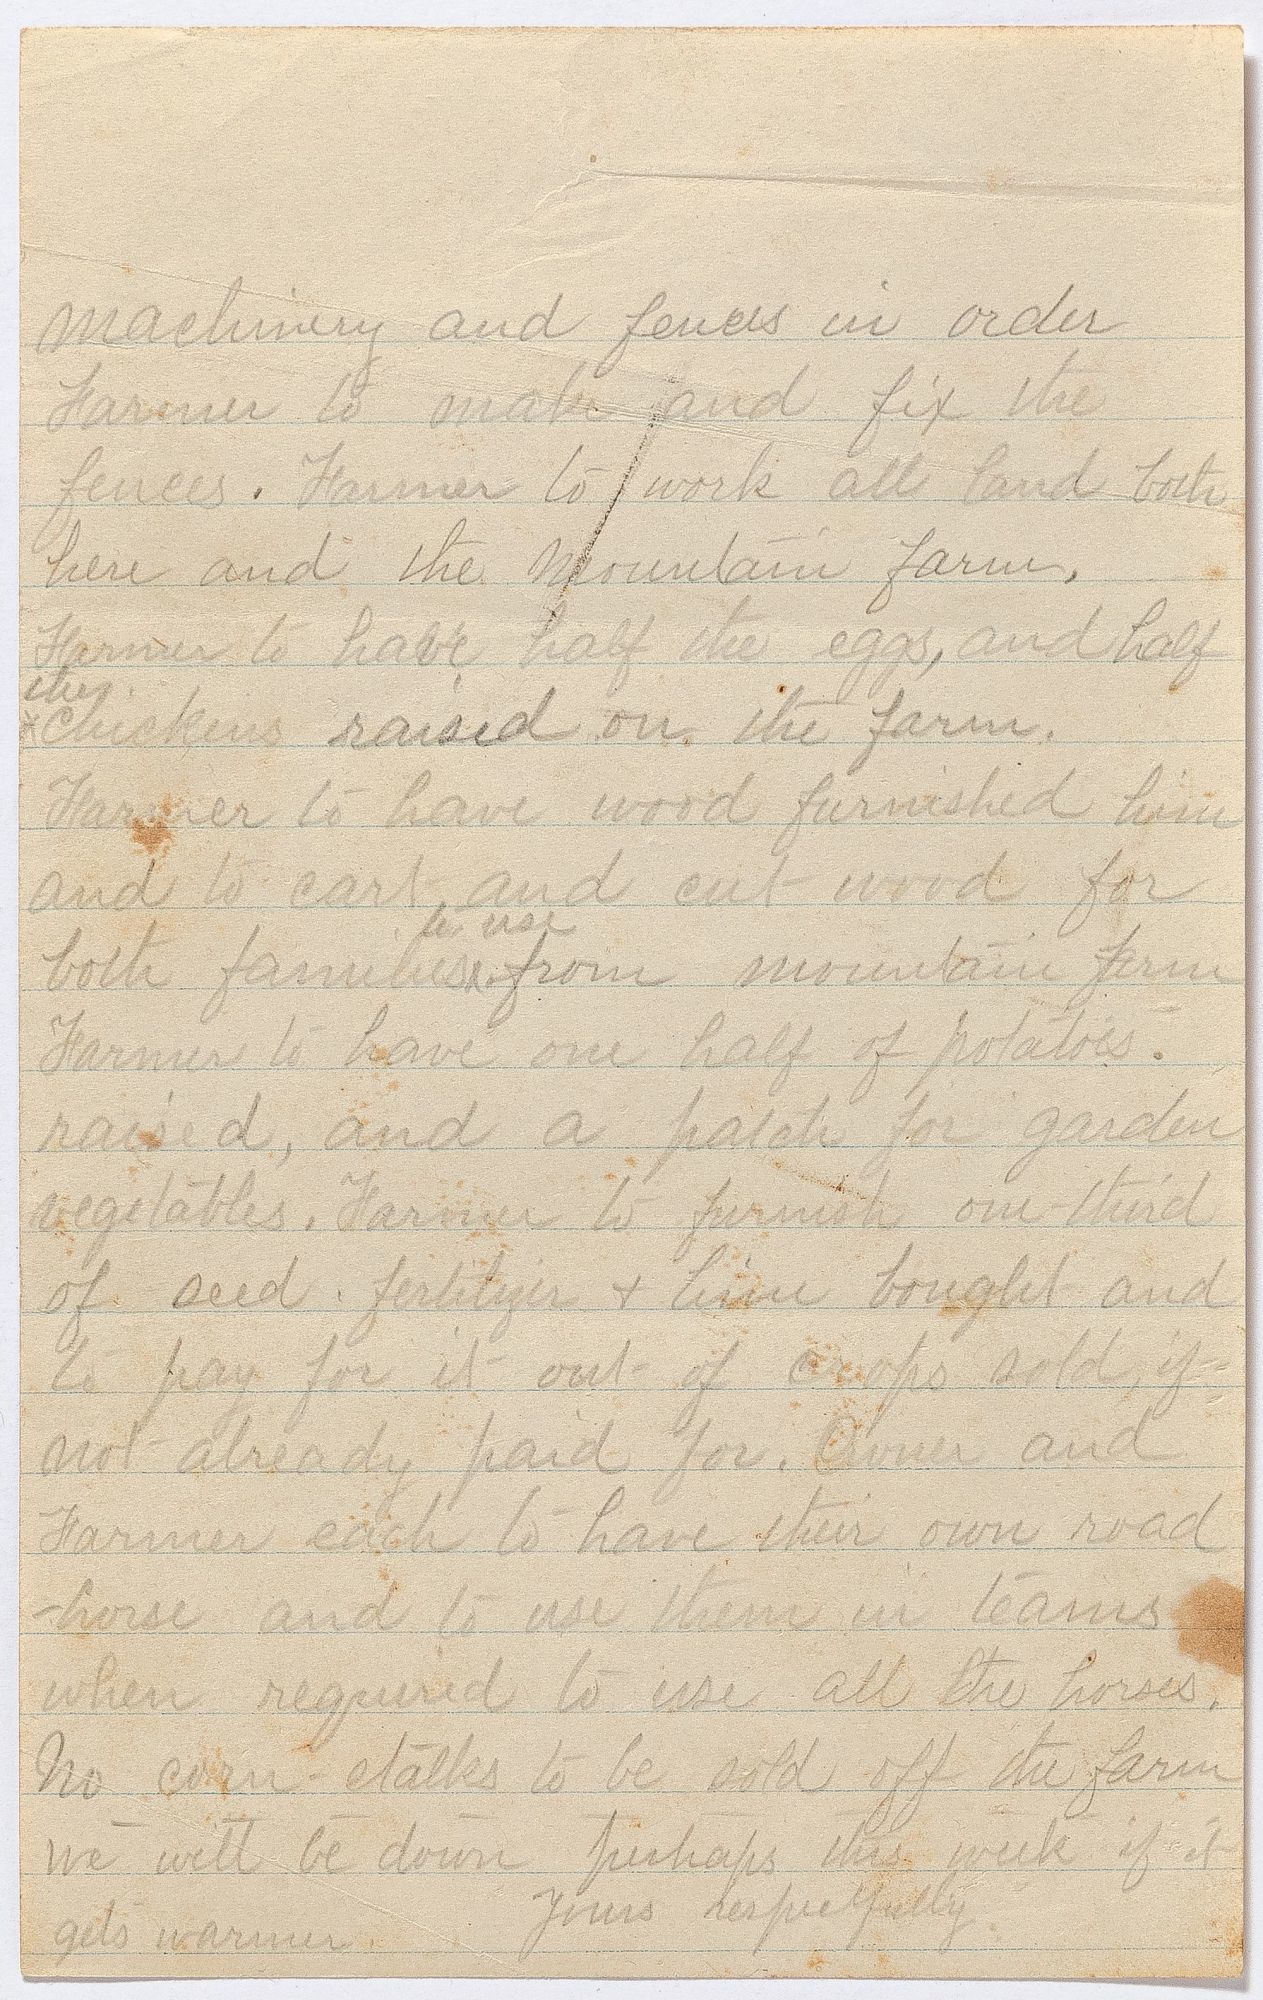 machinery and fences in order
Farmer to make and fix the
fences. Farmer to work all land both
here and the Mountain farm.
Farmer to have half the eggs, and half
they
x chickens raised on the farm.
Farmer to have wood furnished him
and to cart and cut wood for
to use
both families x from mountain farm
Farmer to have one half of potatoes.
raised, and a patch for garden
vegetables. Farmer to furnish one-third
of seed. fertilizer + lime bought and
to pay for it out of crops sold, if
not already paid for. Owner and
Farmer each to have their own road
-horse and to use them in teams
when required to use all the horses.
No corn-stalks to be sold off the farm
we will be down perhaps this week if it
gets warmer. Yours respectfully